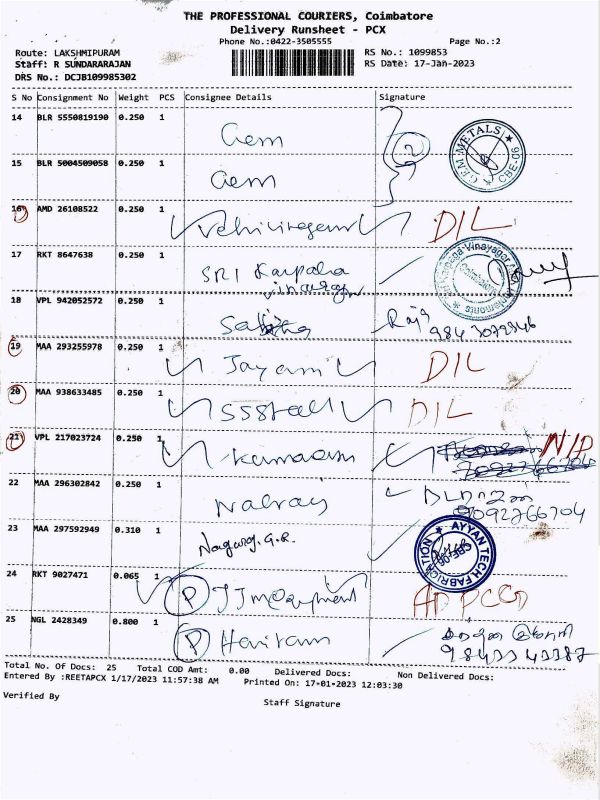 THE PROFESSIONAL COURIERS, Coimbatore
Delivery Runsheet - PCX
Phone No.:0422-3505555 Page No.:2
Route: LAKSHMIPURAM RS No.: 1099853
Staff: R SUNDARARAJAN RS Date: 17-Jan-2023
DRS No.: DCJB109985302
S No Consignment No Weight PCS Consignee Details Signature
14 BLR 5550819190 0.250 1 Gem 2
GEM METALS CBE-06
15 BLR 5004509058 0.250 1 Gem
16 AMD 26108522 0.250 1 DIL
17 RKT 8647638 0.250 1 SRI Karpaha
Vinayaga
18 VPL 942052572 0.250 1 Raj
9843072346
19 MAA 293255978 0.250 1 Jayam DIL
20 MAA 938633485 0.250 1 DIL
21 VPL 217023724 0.250 1 N/P
22 MAA 296302842 0.250 1
9092766704
23 MAA 297592949 0.310 1 Nagaraj.G.R.
AYYAN TECH FABRICATION
24 RKT 9027471 0.065 1 P
25 NGL 2428349 0.800 1 P Hariram
9843343387
Total No. Of Docs: 25 Total COD Amt: 0.00 Delivered Docs: Non Delivered Docs:
Entered By :REETAPCX 1/17/2023 11:57:38 AM Printed On: 17-01-2023 12:03:30
Verified By Staff Signature